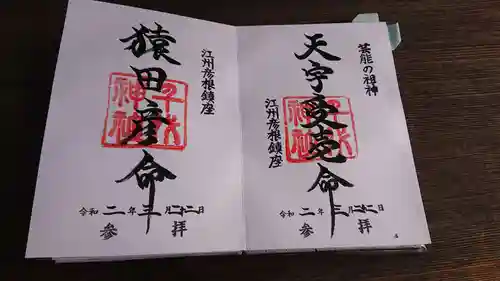 芸能の祖神
天宇受売命
江州彦根鎮座
千代
神社
令和二年三月二十二日
参拝
江州彦根鎮座
猿田彦命
千代
神社
令和二年三月二十二日
参拝